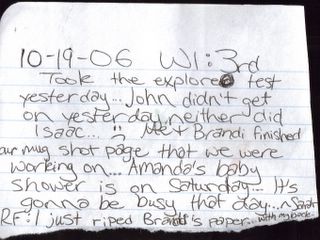 10-19-06 W1:3rd
Took the explore test
yesterday... John didn't get
on yesterday neither did
Isaac... :( Me + Brandi finished
our mug shot page that we were
working on... Amanda's baby
shower is on Saturday... It's
gonna be busy that day... ~Sarah
RF: I just riped Brandi's paper... with my back